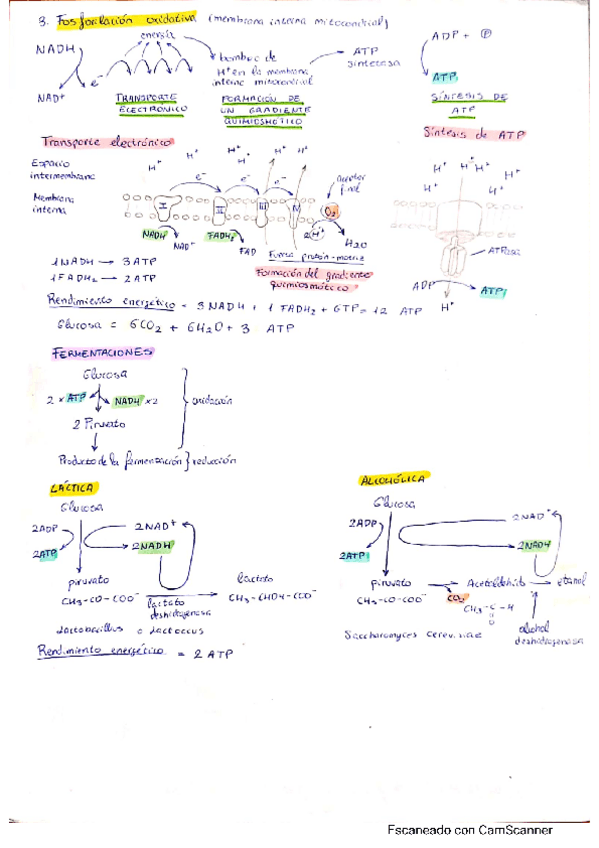 3. Fosforilación oxidativa (membrana interna mitocondrial)
energía
NADH
e⁻
NAD⁺
bombeo de
H⁺ en la membrana
interna mitocondrial
ATP
sintetasa
ADP + P
ATP
TRANSPORTE
ELECTRÓNICO
FORMACIÓN DE
UN GRADIENTE
QUIMIOSMÓTICO
SÍNTESIS DE
ATP
Transporte electrónico
Síntesis de ATP
Espacio
intermembrana
H⁺ H⁺ H⁺ H⁺ H⁺ H⁺
H⁺ H⁺ H⁺ H⁺ H⁺ H⁺
e⁻ e⁻ e⁻
aceptor
final
Membrana
interna
I II III IV
O₂
NADH
NAD⁺
FADH₂
FAD
2H⁺
H₂O
Fuerza protón-motriz
ATPasa
ADP
ATP
H⁺
1 NADH → 3 ATP
1 FADH₂ → 2 ATP
Formación del gradiente
quimiosmótico
Rendimiento energético = 3 NADH + 1 FADH₂ + GTP = 12 ATP
Glucosa = 6CO₂ + 6H₂O + 3 ATP
FERMENTACIONES
Glucosa
2 x ATP
NADH x2
oxidación
2 Piruvato
Producto de la fermentación } reducción
LÁCTICA
Glucosa
2ADP
2ATP
2NAD⁺
2NADH
piruvato
CH₃-CO-COO⁻
lactato
deshidrogenasa
lactato
CH₃-CHOH-COO⁻
Lactobacillus o Lactococcus
Rendimiento energético = 2 ATP
ALCOHÓLICA
Glucosa
2ADP
2ATP
2NAD⁺
2NADH
piruvato
CH₃-CO-COO⁻
CO₂
Acetaldehído
CH₃-C-H
O
etanol
alcohol
deshidrogenasa
Saccharomyces
Escaneado con CamScanner